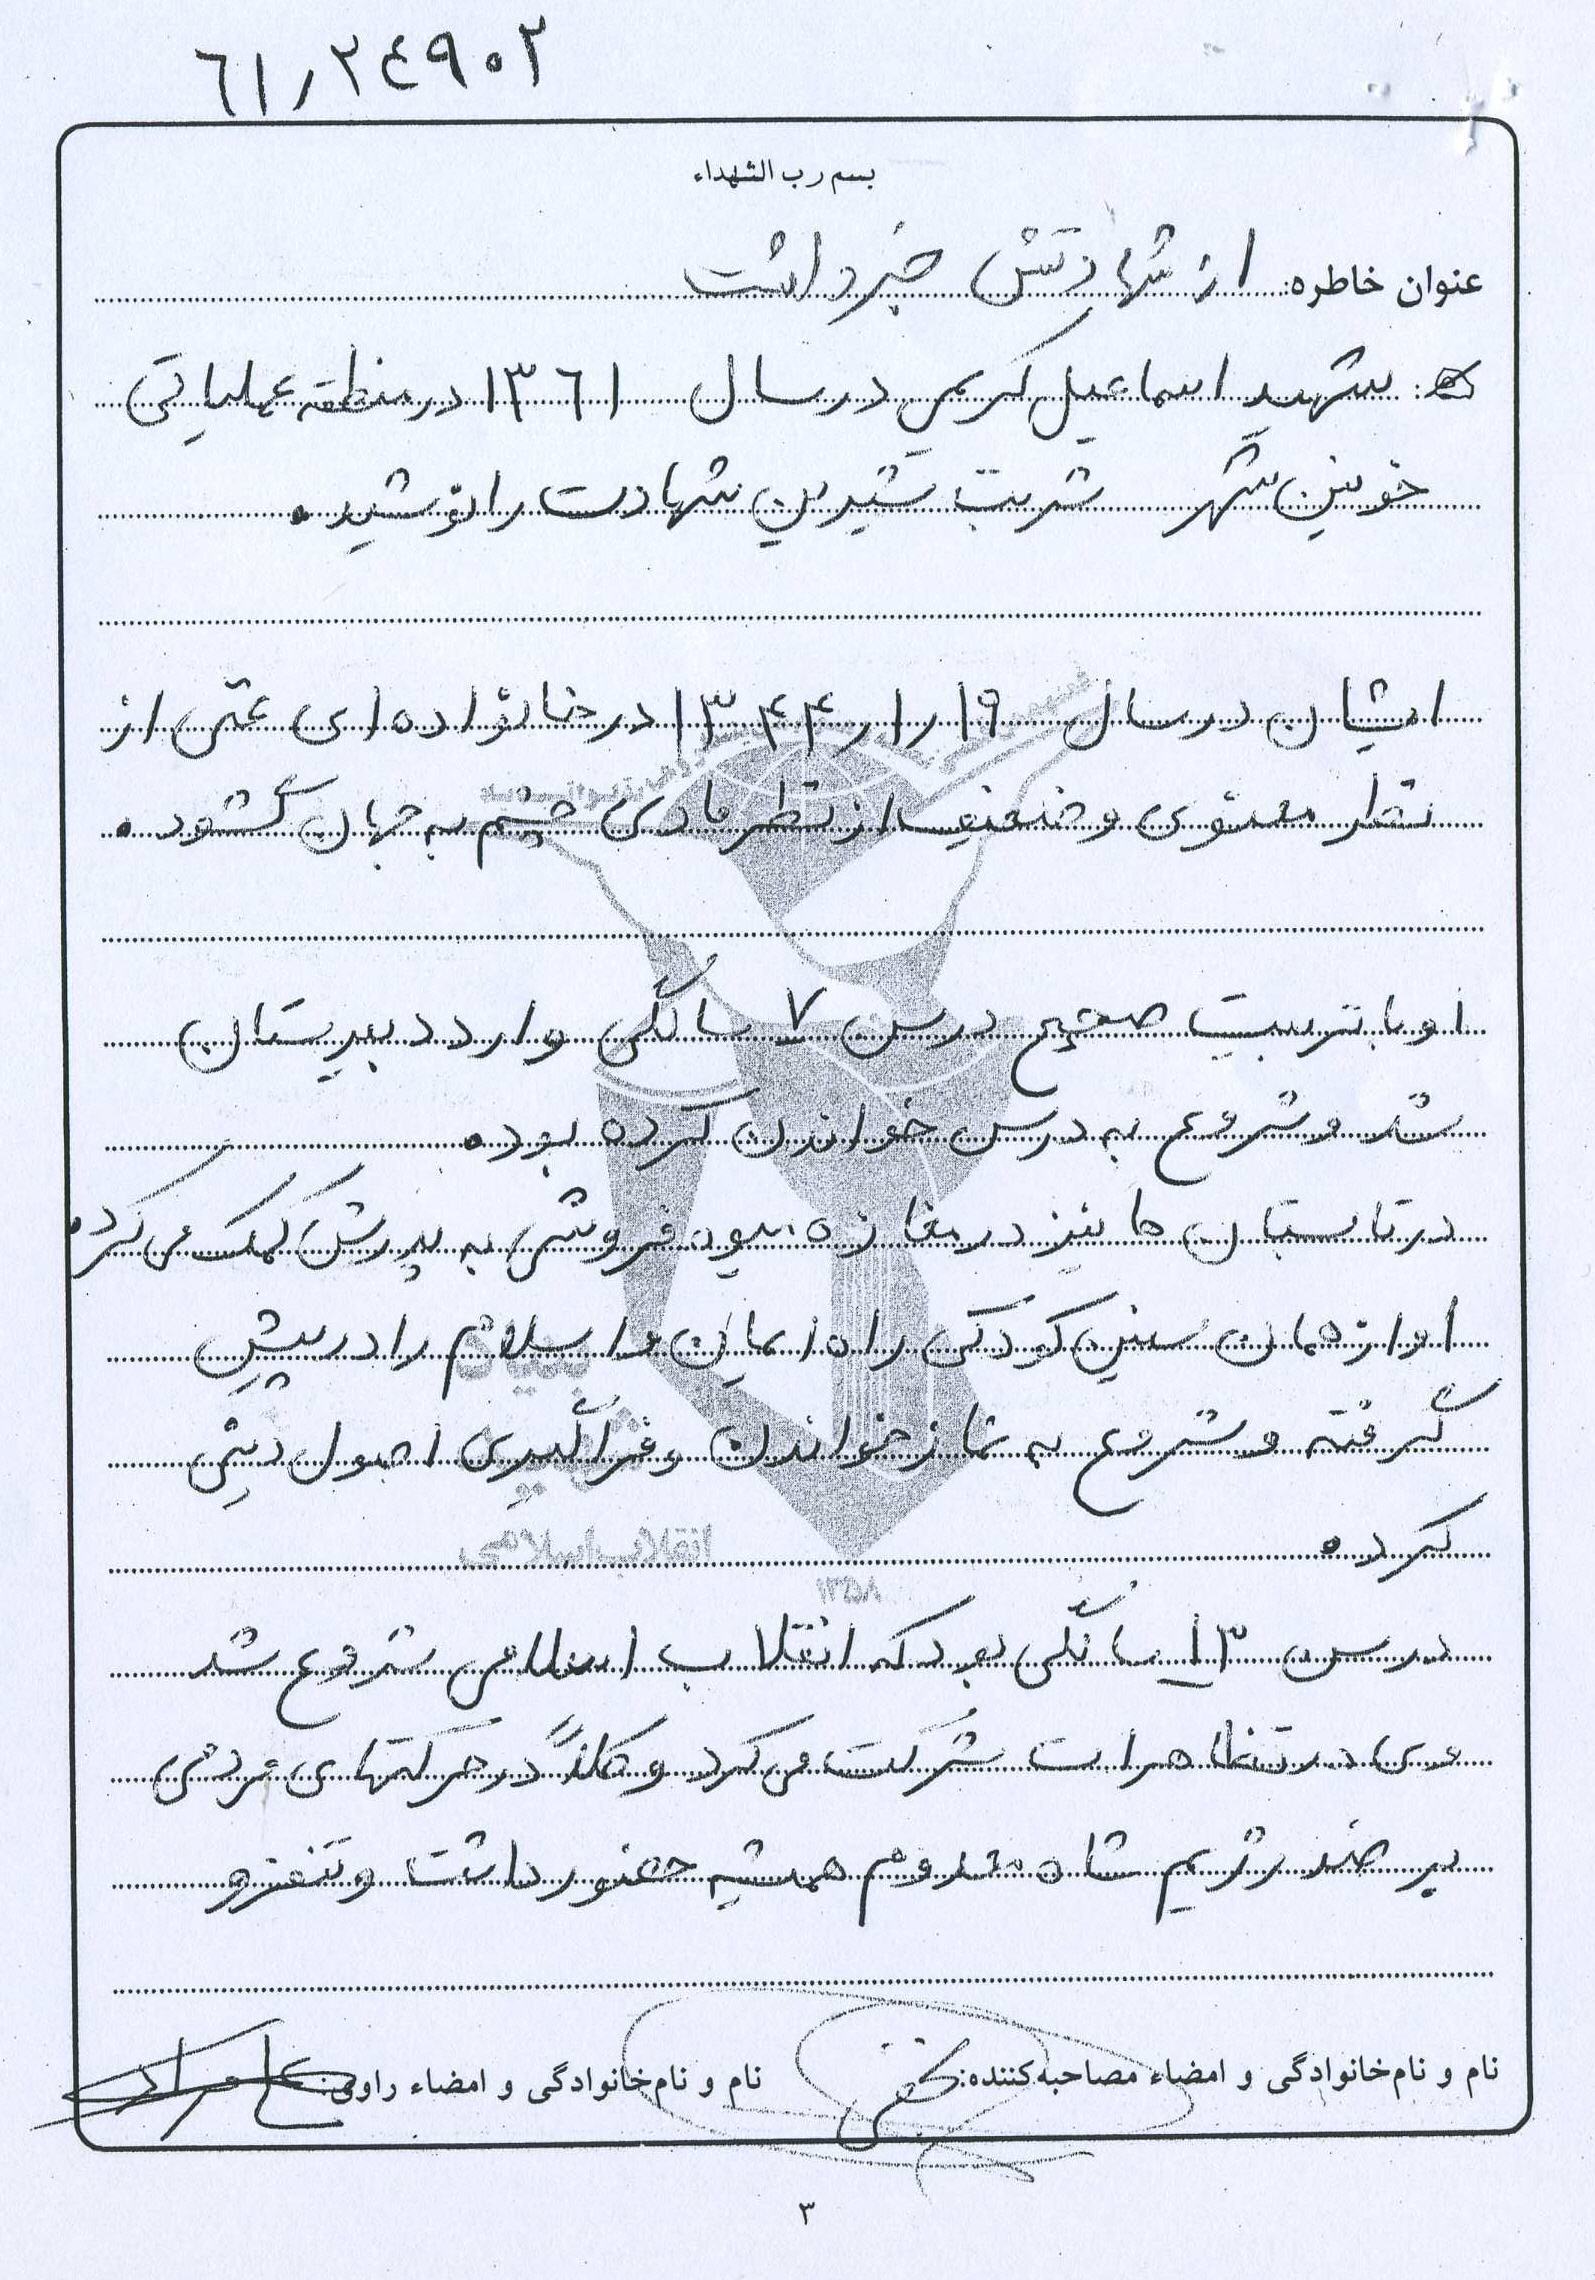 ۶۱٫۲۴۹۰۲
بسم رب الشهداء
عنوان خاطره: از شهادتش خبر داشت
شهید اسماعیل کریمی در سال ۱۳۶۱ در منطقه عملیاتی
خونین شهر شربت شیرین شهادت را نوشید.
ایشان در سال ۱۹ ر ۱ ر ۱۳۴۴ در خانواده ای غنی از
نظر معنوی و ضعیف از نظر مادی چشم به جهان گشود.
او با تربیت صحیح در سن ۷ سالگی وارد دبیرستان
شد و شروع به درس خواندن کرده بود.
در تابستان ها نیز در مغازه میوه فروشی به پدرش کمک می کرد.
او از همان سنین کودکی راه ایمان و اسلام را در پیش
گرفته و شروع به نماز خواندن و فراگیری اصول دینی
کرد.
در سن ۱۳ سالگی بود که انقلاب اسلامی شروع شد
وی در تظاهرات شرکت می کرد و کلاً در حرکتهای مردمی
بر ضد رژیم شاه معدوم همیشه حضور داشت و تنفر و
انقلاب اسلامی
۱۳۵۸
نام و نام خانوادگی و امضاء مصاحبه کننده:
نام و نام خانوادگی و امضاء راوی:
۳